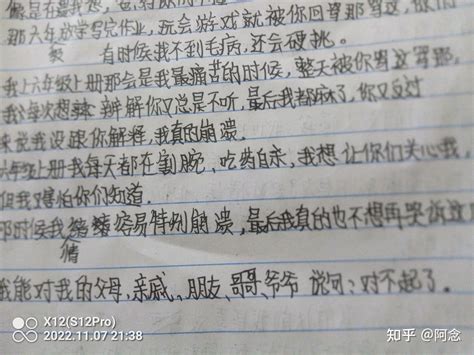 那六年放学写完作业，玩会游戏就被你回骂那骂这，你们
有时候找不到毛病，还会硬挑。
我上六年级上册那会是我最痛苦的时候，整天被你骂这骂那。
我每次想辨解你又总是不听，最后我都麻了，你又反过
来说我没跟你解释，我真的崩溃。
六年级上册我每天都在割腕、吃药自杀，我想让你们关心我，
但我又害怕你们知道。
那时候我情绪容易特别崩溃，最后我真的也不想再哭诉这
我能对我的父母，亲戚，朋友、哥哥、爷爷说句：对不起了。
X12(S12Pro)
2022.11.07 21:38
知乎 @阿念